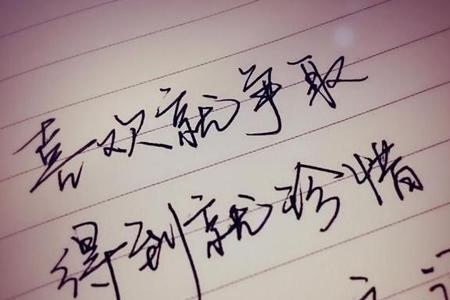 喜欢就争取
得到就珍惜